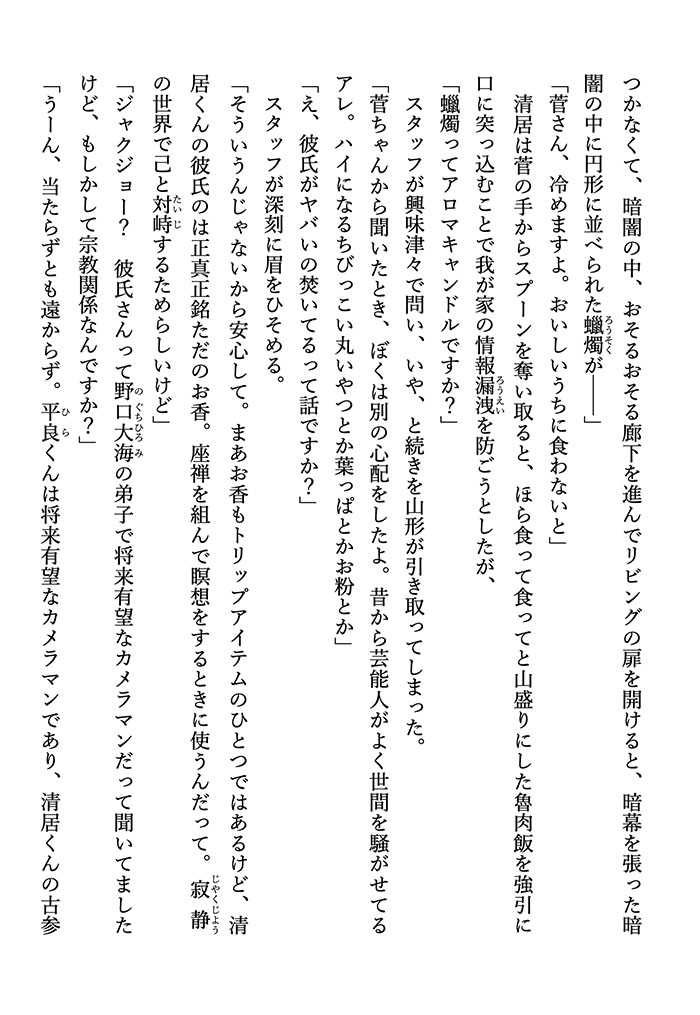 つかなくて、暗闇の中、おそるおそる廊下を進んでリビングの扉を開けると、暗幕を張った暗
闇の中に円形に並べられた蠟燭が――」
「菅さん、冷めますよ。おいしいうちに食わないと」
　清居は菅の手からスプーンを奪い取ると、ほら食って食ってと山盛りにした魯肉飯を強引に
口に突っ込むことで我が家の情報漏洩を防ごうとしたが、
「蠟燭ってアロマキャンドルですか？」
　スタッフが興味津々で問い、いや、と続きを山形が引き取ってしまった。
「菅ちゃんから聞いたとき、ぼくは別の心配をしたよ。昔から芸能人がよく世間を騒がせてる
アレ。ハイになるちびっこい丸いやつとか葉っぱとかお粉とか」
「え、彼氏がヤバいの焚いてるって話ですか？」
　スタッフが深刻に眉をひそめる。
「そういうんじゃないから安心して。まあお香もトリップアイテムのひとつではあるけど、清
居くんの彼氏のは正真正銘ただのお香。座禅を組んで瞑想をするときに使うんだって。寂静
の世界で己と対峙するためらしいけど」
「ジャクジョー？　彼氏さんって野口大海の弟子で将来有望なカメラマンだって聞いてました
けど、もしかして宗教関係なんですか？」
「うーん、当たらずとも遠からず。平良くんは将来有望なカメラマンであり、清居くんの古参